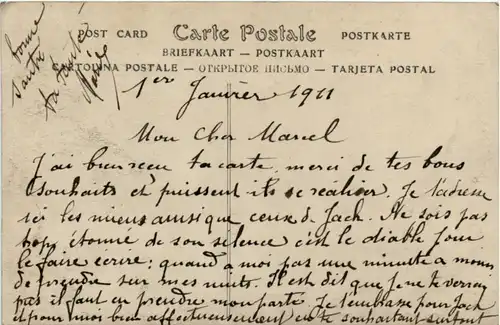 POST CARD Carte Postale POSTKARTE
BRIEFKAART — POSTKAART
CARTOLINA POSTALE — ОТКРЫТОЕ ПИСЬМО — TARJETA POSTAL
bonne
santé
ta tante
1er Janvier 1911
Mon Cher Marcel
J'ai bien reçu ta carte, merci de tes bons
souhaits et puissent ils se réaliser. Je t'adresse
ici les miens ainsi que ceux de Jack. Ne sois pas
trop étonné de son silence c'est le diable pour
le faire écrire; quand à moi pas une minute a moins
de prendre sur mes nuits. Il est dit que je ne te verrai
pas il faut en prendre mon parti. Je t'embrasse pour Jack
et pour moi bien affectueusement en te souhaitant surtout